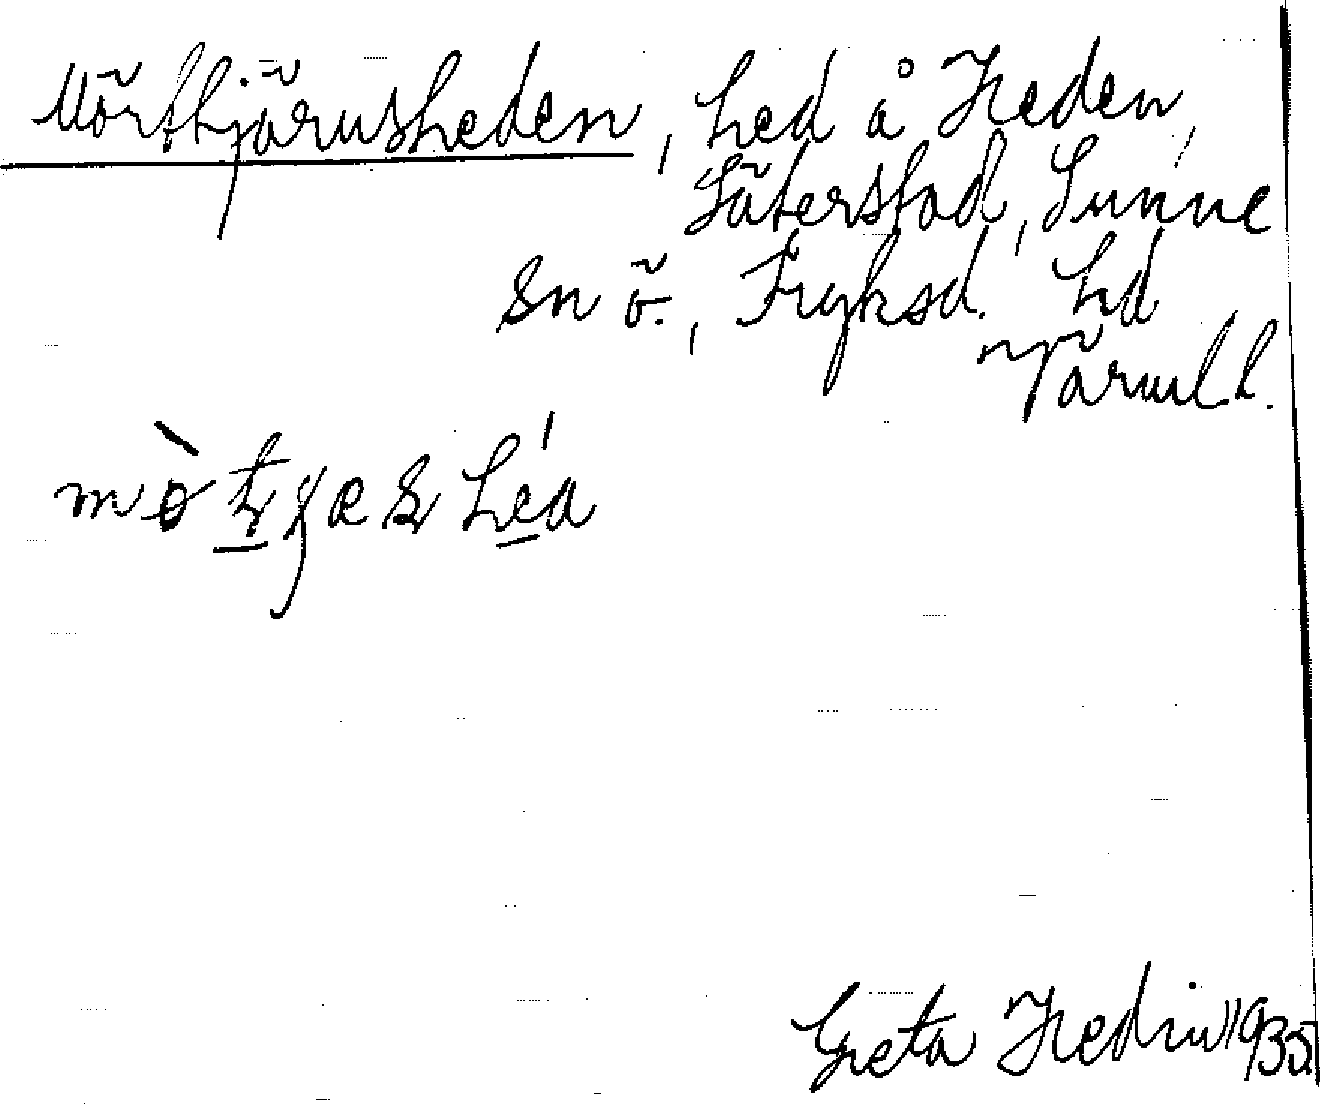 Mörtkjärnsheden, hed å Heden,
Säterstad, Sunne
sn ö., Fryksd. hd
Värml l.
Greta Hedin 1935